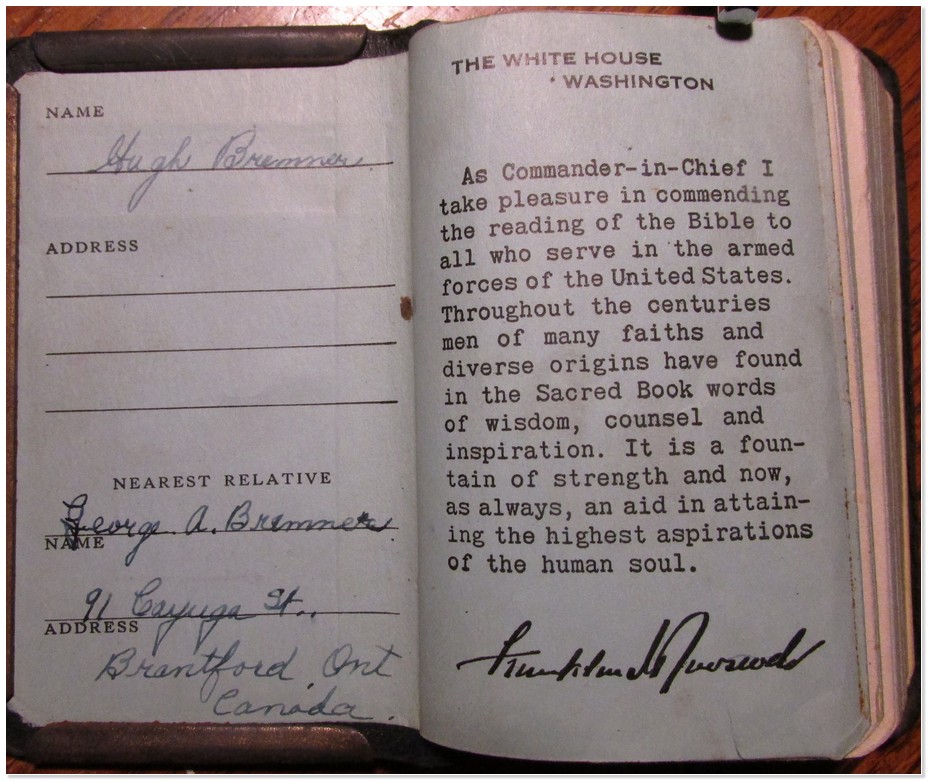 NAME
Hugh Bremner
ADDRESS
NEAREST RELATIVE
George A. Bremner
NAME
91 Cayuga St.
ADDRESS
Brantford, Ont
Canada.
THE WHITE HOUSE
WASHINGTON
As Commander-in-Chief I
take pleasure in commending
the reading of the Bible to
all who serve in the armed
forces of the United States.
Throughout the centuries
men of many faiths and
diverse origins have found
in the Sacred Book words
of wisdom, counsel and
inspiration. It is a foun-
tain of strength and now,
as always, an aid in attain-
ing the highest aspirations
of the human soul.
Franklin D Roosevelt